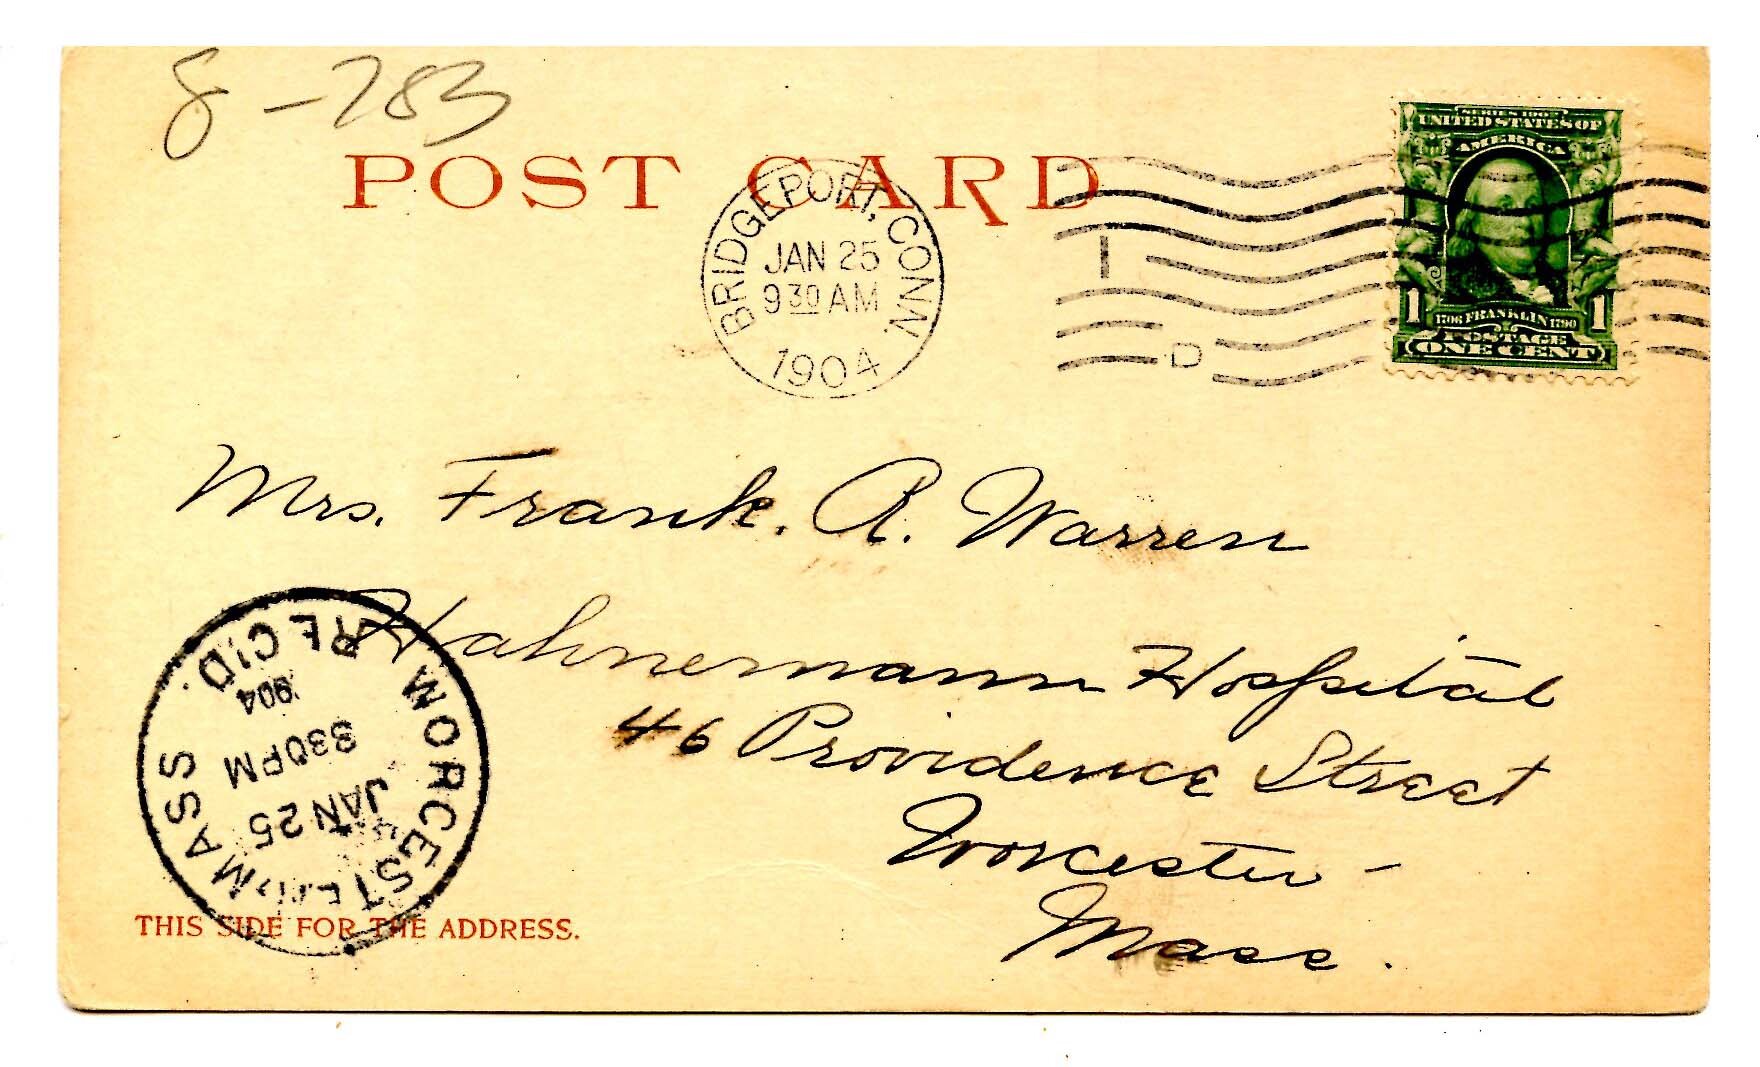 8-783
POST CARD
BRIDGEPORT, CONN.
JAN 25
9 30 AM
1904
I
D
SERIES 1902
UNITED STATES OF
AMERICA
1706 FRANKLIN 1790
POSTAGE
1 1
ONE CENT
Mrs. Frank. A. Warren
Hahnemann Hospital
46 Providence Street
Worcester -
Mass.
WORCESTER, MASS.
JAN 25
830PM
1904
REC'D.
THIS SIDE FOR THE ADDRESS.